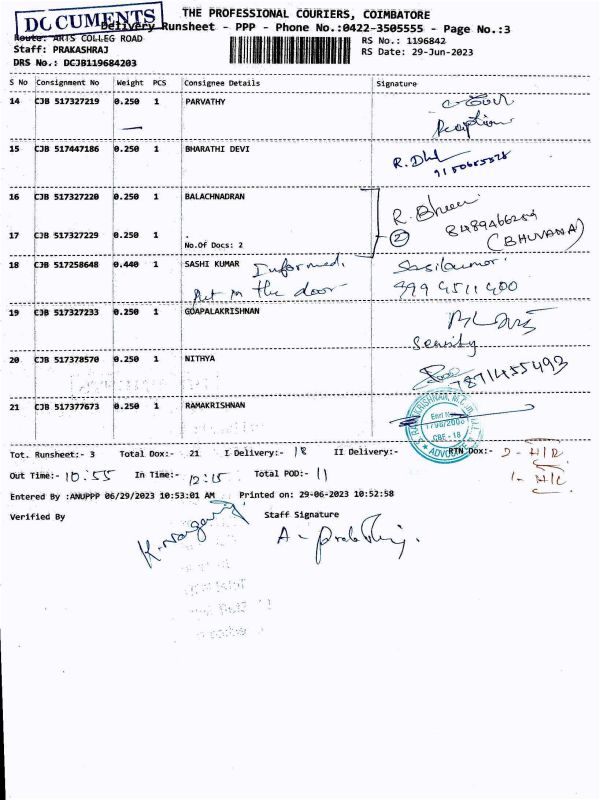 DOCUMENTS
THE PROFESSIONAL COURIERS, COIMBATORE
Delivery Runsheet - PPP - Phone No.:0422-3505555 - Page No.:3
Route: ARTS COLLEG ROAD
RS No.: 1196842
Staff: PRAKASHRAJ
RS Date: 29-Jun-2023
DRS No.: DCJB119684203
S No Consignment No Weight PCS Consignee Details Signature
14 CJB 517327219 0.250 1 PARVATHY
Reception
15 CJB 517447186 0.250 1 BHARATHI DEVI
16 CJB 517327220 0.250 1 BALACHNADRAN
R. Bheem
(BHUVANA)
17 CJB 517327229 0.250 1 . 2
No.Of Docs: 2
18 CJB 517258648 0.440 1 SASHI KUMAR Informed. Sasikumar.
Put in the door 999 4511 400
19 CJB 517327233 0.250 1 GOAPALAKRISHNAN
Security
20 CJB 517378570 0.250 1 NITHYA 7871455493
21 CJB 517377673 0.250 1 RAMAKRISHNAN
CBE - 18
ADVOCATE
Tot. Runsheet:- 3 Total Dox:- 21 I Delivery:- 18 II Delivery:- RTN Dox:-
Out Time:- 10:55 In Time:- 12:15 Total POD:- 11
Entered By :ANUPPP 06/29/2023 10:53:01 AM Printed on: 29-06-2023 10:52:58
Verified By Staff Signature